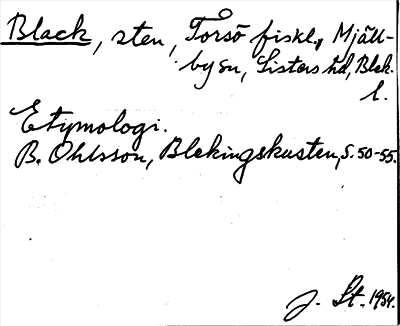 Black, sten, Torsö fiskl., Mjäll-
by sn, Listers hd, Blek.
l.
Etymologi.
B. Ohlsson, Blekingskusten, s. 50-55.
J. St. 1954.